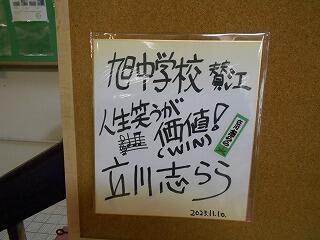 旭中学校 賛江
人生笑うが
価値!
(WIN)
立川志らら
2023.11.10.